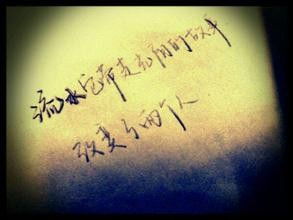 流水它带走光阴的故事
改变了两个人